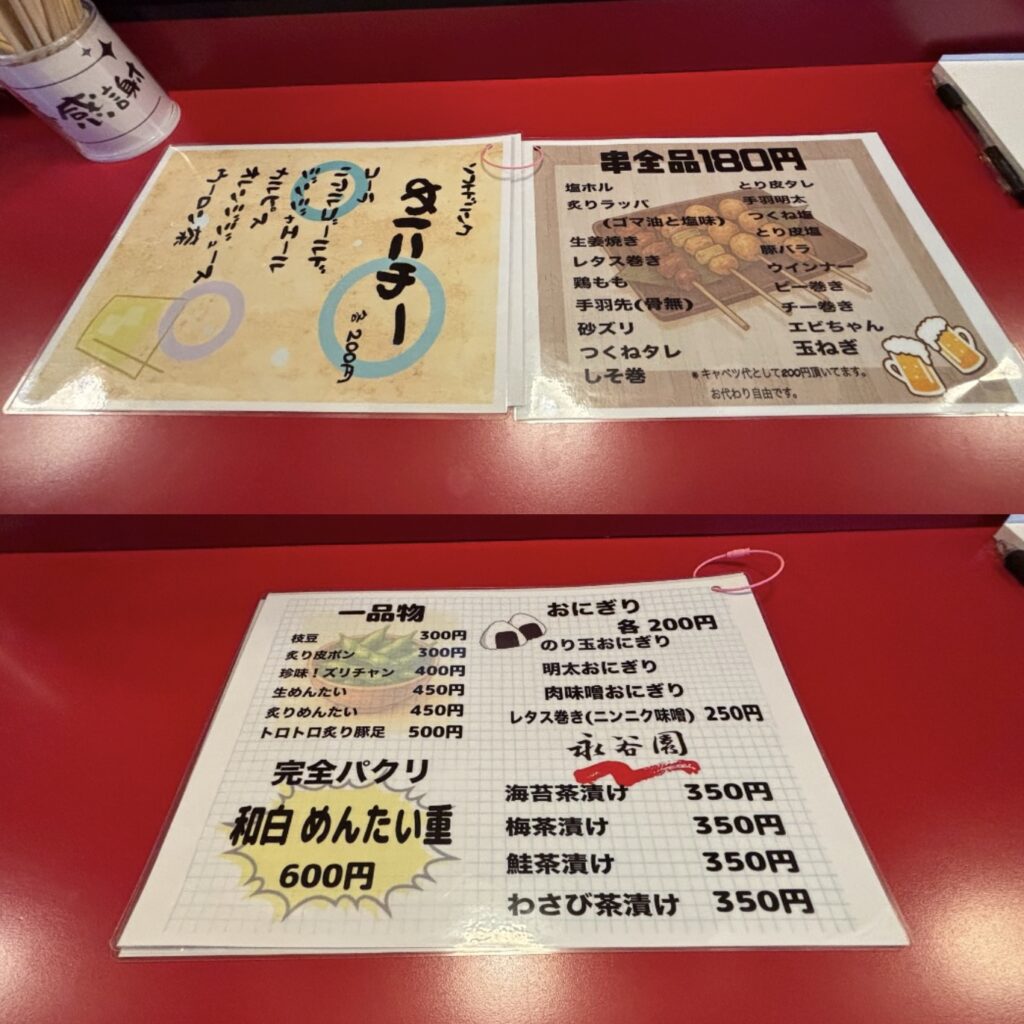 感謝
ソフトドリンク
めにニチー
各200円
コーラ
リアルゴールド
ジンジャエール
カルピス
オレンジジュース
ウーロン茶
串全品180円
塩ホル
炙りラッパ
(ゴマ油と塩味)
生姜焼き
レタス巻き
鶏もも
手羽先(骨無)
砂ズリ
つくねタレ
しそ巻
とり皮タレ
手羽明太
つくね塩
とり皮塩
豚バラ
ウインナー
ピー巻き
チー巻き
エビちゃん
玉ねぎ
*キャベツ代として200円頂いてます。
お代わり自由です。
一品物
枝豆 300円
炙り皮ポン 300円
珍味!ズリチャン 400円
生めんたい 450円
炙りめんたい 450円
トロトロ炙り豚足 500円
完全パクリ
和白 めんたい重
600円
おにぎり
各 200円
のり玉おにぎり
明太おにぎり
肉味噌おにぎり
レタス巻き(ニンニク味噌) 250円
永谷園
海苔茶漬け 350円
梅茶漬け 350円
鮭茶漬け 350円
わさび茶漬け 350円